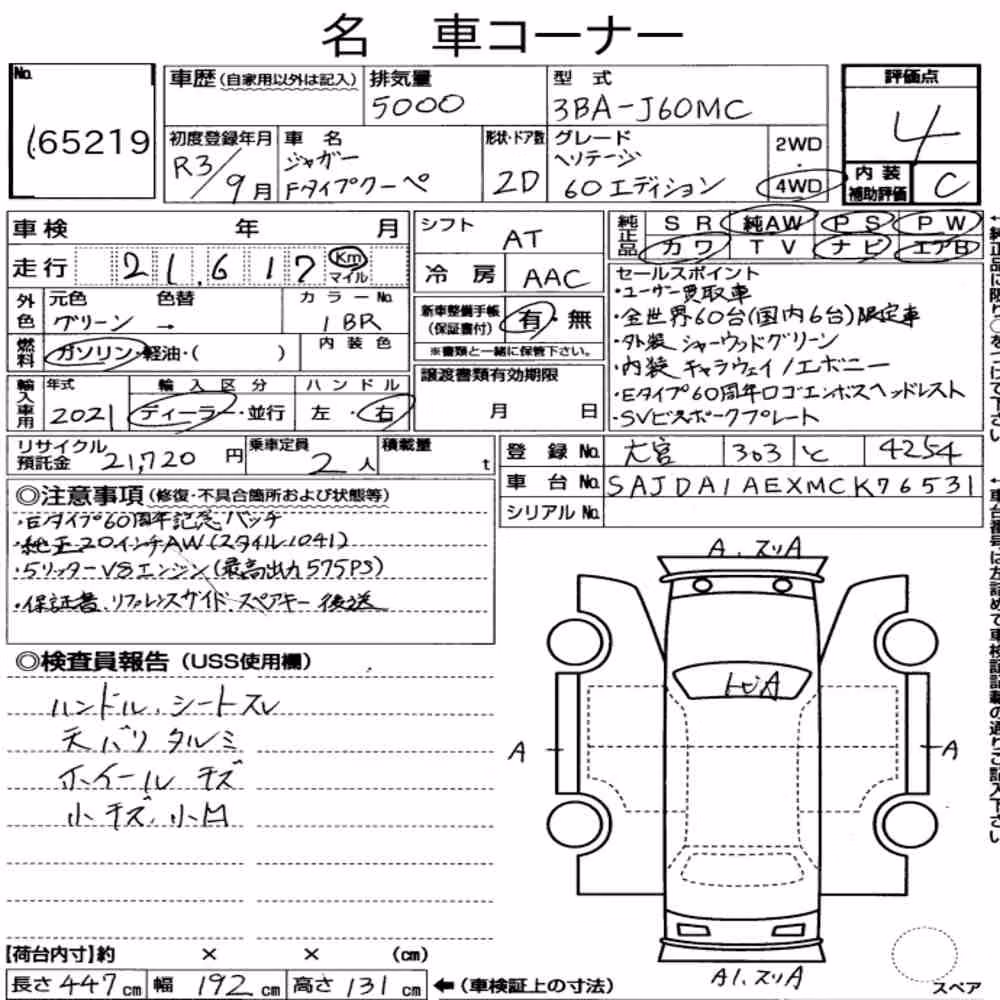 名 車コーナー
No.
165219
車歴 (自家用以外は記入)
排気量
5000
型 式
3BA-J60MC
初度登録年月
R3/9月
車 名
ジャガー
Fタイプクーペ
形状・ドア数
2D
グレード
ヘリテージ
60エディション
2WD
・
4WD
評価点
4
内 装
補助評価
C
車検 年 月
走行 21,617 Km
マイル
外色
元色 色替
グリーン →
カラーNo.
1BR
燃料
ガソリン・軽油・( )
内 装 色
輸入車用
年式
2021
輸 入 区 分
ディーラー・並行
ハ ン ド ル
左・右
シフト
AT
冷 房
AAC
新車整備手帳
(保証書付)
有・無
※書類と一緒に保管下さい。
譲渡書類有効期限
月 日
純正品
S R 純AW P S P W
カワ T V ナビ エアB
セールスポイント
・ユーザー買取車
・全世界60台(国内6台)限定車
・外装 シャーウッドグリーン
・内装 キャラウェイ/エボニー
・Eタイプ60周年ロゴエンボスヘッドレスト
・SVビスポークプレート
リサイクル
預託金
21,720 円
乗車定員
2人
積載量
t
登 録 No. 大宮 303 と 4254
車 台 No. SAJDA1AEXMCK76531
シリアル No.
◎注意事項 (修復・不具合箇所および状態等)
・Eタイプ60周年記念バッチ
・純正20インチAW(スタイル1041)
・5リッターV8エンジン(最高出力575PS)
・保証書、リファレンスガイド、スペアキー 後送
◎検査員報告 (USS使用欄)
ハンドル、シートスレ
天バリ タルミ
ホイール キズ
小キズ、小凹
A、スリA
トビA
A
A
A1、スリA
スペア
【荷台内寸】約 × × (cm)
長さ 447cm 幅 192cm 高さ 131cm ←(車検証上の寸法)
←純正品に限り○をつけて下さい
←車台番号は左詰めで車検証記載の通りご記入下さい